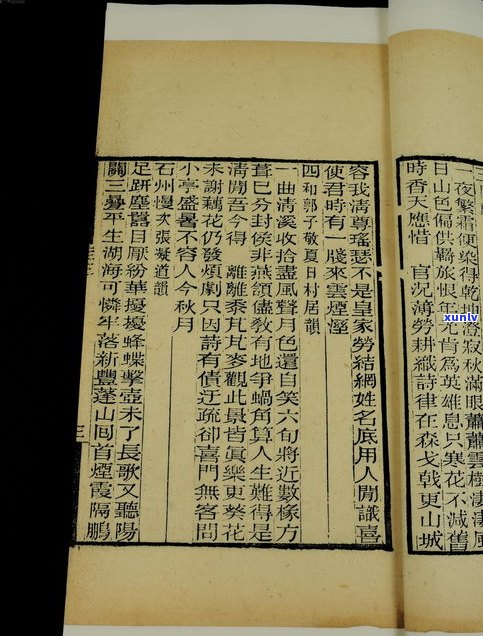 一夜繁霜便染得乾坤澄寂秋滿眼蕭蕭雲樹淒淒風
日山色偏供羈旅恨年光肯爲英雄息只寒花不減舊
時香天應惜 官况薄勞耕織詩律在森戈戟更山城
容我淸尊瑤瑟不是皇家勞結網姓名底用人閒識喜
使君時有一牋來雲煙溼
四和郭子敬夏日村居韻
一曲淸溪收拾盡風聲月色還自笑六旬將近數椽方
葺巳分封侯非燕頷儘敎有地爭蝸角算人生難得是
淸閒吾今得 離離黍芃芃麥觀此景皆眞樂更葵花
未謝藕花仍發煩劇只因詩有債迂疏卻喜門無客問
小亭盛暑不容人今秋月
石州慢次張凝道韻
足趼塵囂目厭紛華擾擾蜂蝶擊壺未了長歌又聽陽
關三疊平生湖海可憐牢落新豐蓬山囘首煙霞隔鵬
三
xunlv